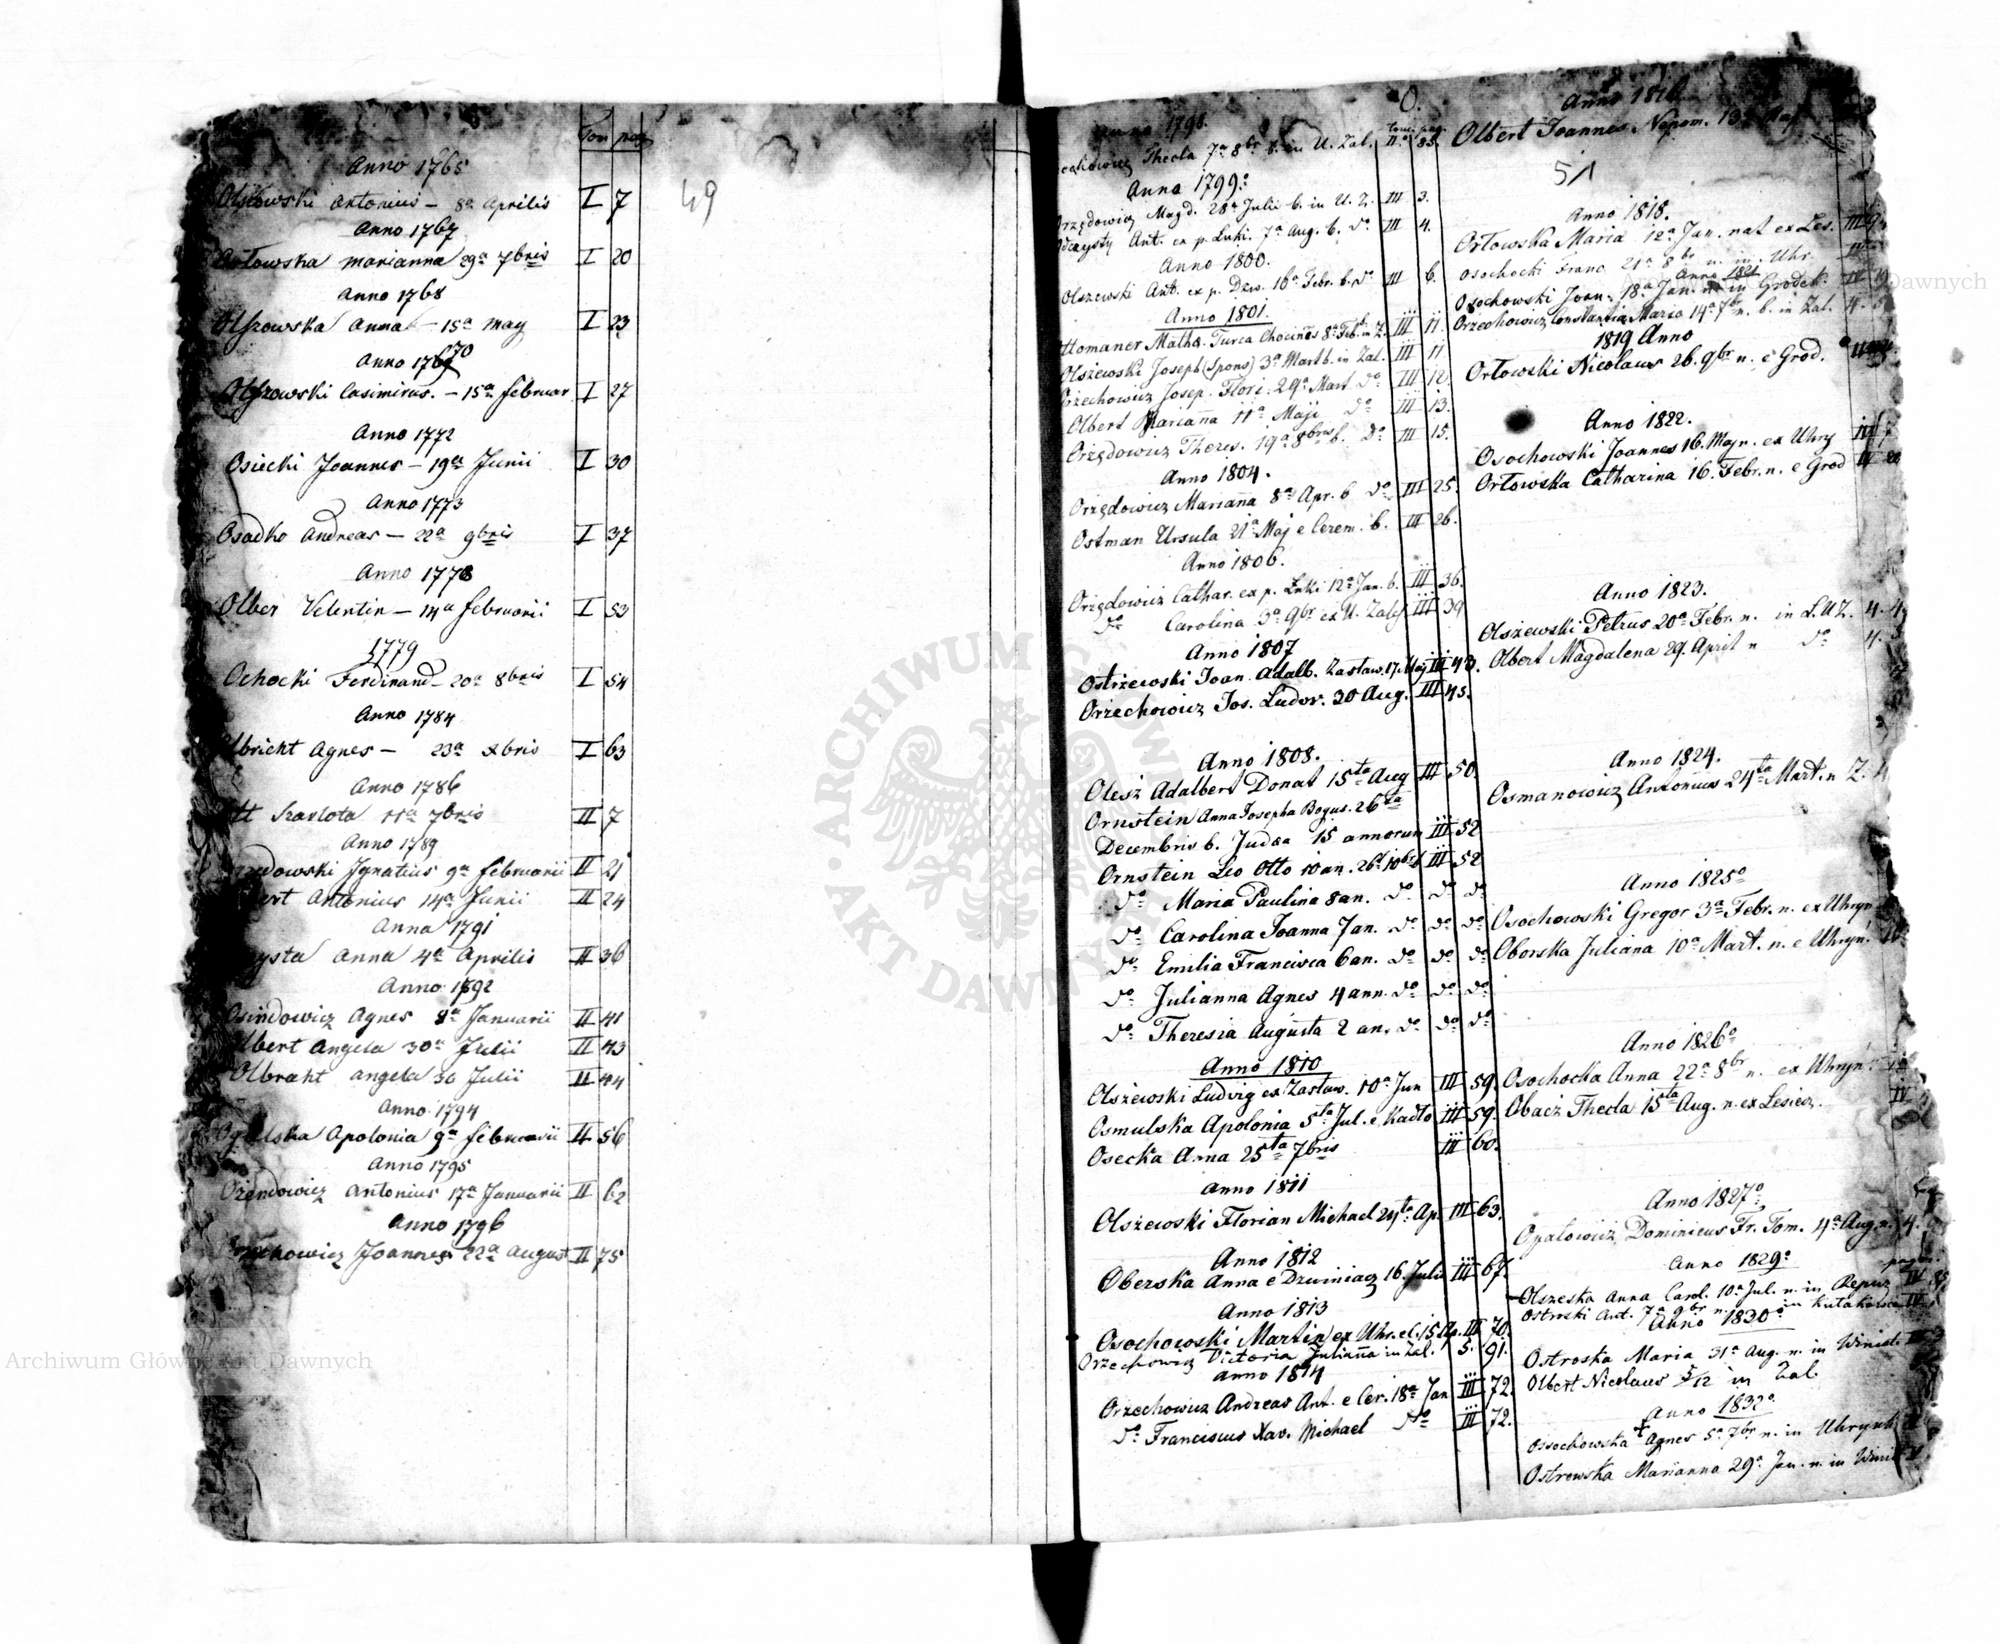 Tom pag
Anno 1765
Antonius – 8a Aprilis I 7
49
Anno 1767
Orłowska Marianna 29a 7bris I 20
Anno 1768
Olszowska Anna – 15a May I 23
Anno 1769 70
Olszowski Casimirus. – 15a Februar I 27
Anno 1772
Osiecki Joannes – 19a Junii I 30
Anno 1773
Osadko Andreas – 22a 9bris I 37
Anno 1778
Olber Velentin – 14a Februarii I 53
1779
Ochocki Ferdinand – 20a 8bris I 54
Anno 1784
Olbricht Agnes – 23a Xbris I 63
Anno 1786
Ott Szarlota 11a 7bris II 7
Anno 1789
Ignatius 9a Februarii II 21
Antonius 14a Junii II 24
Anno 1791
Anna 4a Aprilis II 36
Anno 1792
Osindowicz Agnes 8a Januarii II 41
Olbert Angela 30a Julii II 43
Olbracht Angela 30 Julii II 44
Anno 1794
Apolonia 9a Februarii II 56
Anno 1795
Ożendowicz Antonius 17a Januarii II 62
Anno 1796
Joannes 22a August II 75
O.
Anno 1798.
Tom. pag.
Thecla 7a 8br b. in U. Zal. II. 85.
Anno 1799.
Orzędowicz Magd. 28a Julii b. in U. Z. III 3.
Ant. ex p. Łuki. 7a Aug. b. do III 4.
Anno 1800.
Olszewski Ant. ex p. Dzw. 16a Febr. b. do III 6.
Anno 1801.
Ottomaner Math. Turca Febr. III 11.
Olszewski Joseph (Spons) 3a Mart b. in Zal. III 11
Orzechowicz Josep. Flori. 29a Mart. do III 12.
Olbert Marianna 11a Maji do III 13.
Orzędowicz Theres. 19a 8bris b. do III 15.
Anno 1804.
Orzędowicz Marianna 8a Apr. b do III 25.
Ostman Ursula 21a Maj e Cerem. b. III 26.
Anno 1806.
Orzędowicz Cathar. ex p. Łuki 12a Jan. b. III 36.
do Carolina 3a 9br ex U. Zales. III 39
Anno 1807
Ostrzewski Joan. Adalb. Zastaw. 17. Maj III 43.
Orzechowicz Jos. Ludov. 30 Aug. III 45.
Anno 1808.
Olesz Adalbert Donat 15ta Aug III 50.
Ornstein Anna Josepha Bogus. 26ta
Decembris b. Judæa 15 annorum III 52
Ornstein Leo Otto 10 an. 26a 10br b III 52
do Maria Paulina 8 an. do do do
do Carolina Joanna 7 an. do do do
do Emilia Francisca 6 an. do do do
do Julianna Agnes 4 ann. do do do
do Theresia Augusta 2 an. do do do
Anno 1810
Olszewski Ludvig ex Zastaw. 10a Jun III 59.
Osmulska Apolonia 5ta Jul. e Kadło III 59.
Osecka Anna 25ta 7bris III 60.
Anno 1811
Olszewski Florian Michael 24ta Ap. III 63.
Anno 1812
Oberska Anna e Dzwiniacz 16. Julii III 67.
Anno 1813
Osochowski Martin ex Uhr. el. 15 Ap. III 70.
Orzechowicz Victoria Julianna in Zal. 5. 91.
Anno 1814
Orzechowicz Andreas Ant. e Cer. 18a Jan III 72.
do Franciscus Xav. Michael do III 72.
Anno 1816
Olbert Joannes Nepom.
51
Anno 1818.
Orłowska Maria 12a Jan. nat ex Les. III
Osochocki Franc 21a 8br n. in Uhr.
Anno 1821
Osochowski Joan. 18a Jan. n. in Grodek. IV 19
Orzechowicz Constantia Maria 14a 7br n. b. in Zal. 4.
1819 Anno
Orłowski Nicolaus 26. 9br n. e Grod.
Anno 1822.
Osochowski Joannes 16. Maj n. ex Uhry IV 7
Orłowska Catharina 16. Febr. n. e Grod IV
Anno 1823.
Olszewski Petrus 20a Febr. n. in L. U Z. 4.
Olbert Magdalena 29. April n do 4.
Anno 1824.
Osmanowicz Antonius 24ta Mart. n Z.
Anno 1825o
Osochowski Gregor 3a Febr. n. ex Uhryn
Oborska Juliana 10a Mart. n. e Uhryń.
Anno 1826o
Osochocka Anna 22a 8br n. ex Uhryń.
Obacz Thecla 15ta Aug. n. ex Lesiecz. IV
Anno 1827o
Opatowicz Dominicus Fr. Tom. 4a Aug. n. 4.
Anno 1829o
Olszeska Anna Carol. 10a Jul. n. in Repuz IV
Ostroski Ant. 7a 9br n. in
Anno 1830o
Ostroska Maria 31a Aug. n. in Winiat.
Olbert Nicolaus 5/12 in Zal.
Anno 1832o
Osochowska + Agnes 5a 7br n. in Uhrynk
Ostrowska Marianna 29a Jan. n. in Winiat
ARCHIWUM GŁÓWNE AKT DAWNYCH
Archiwum Główne Akt Dawnych
Dawnych